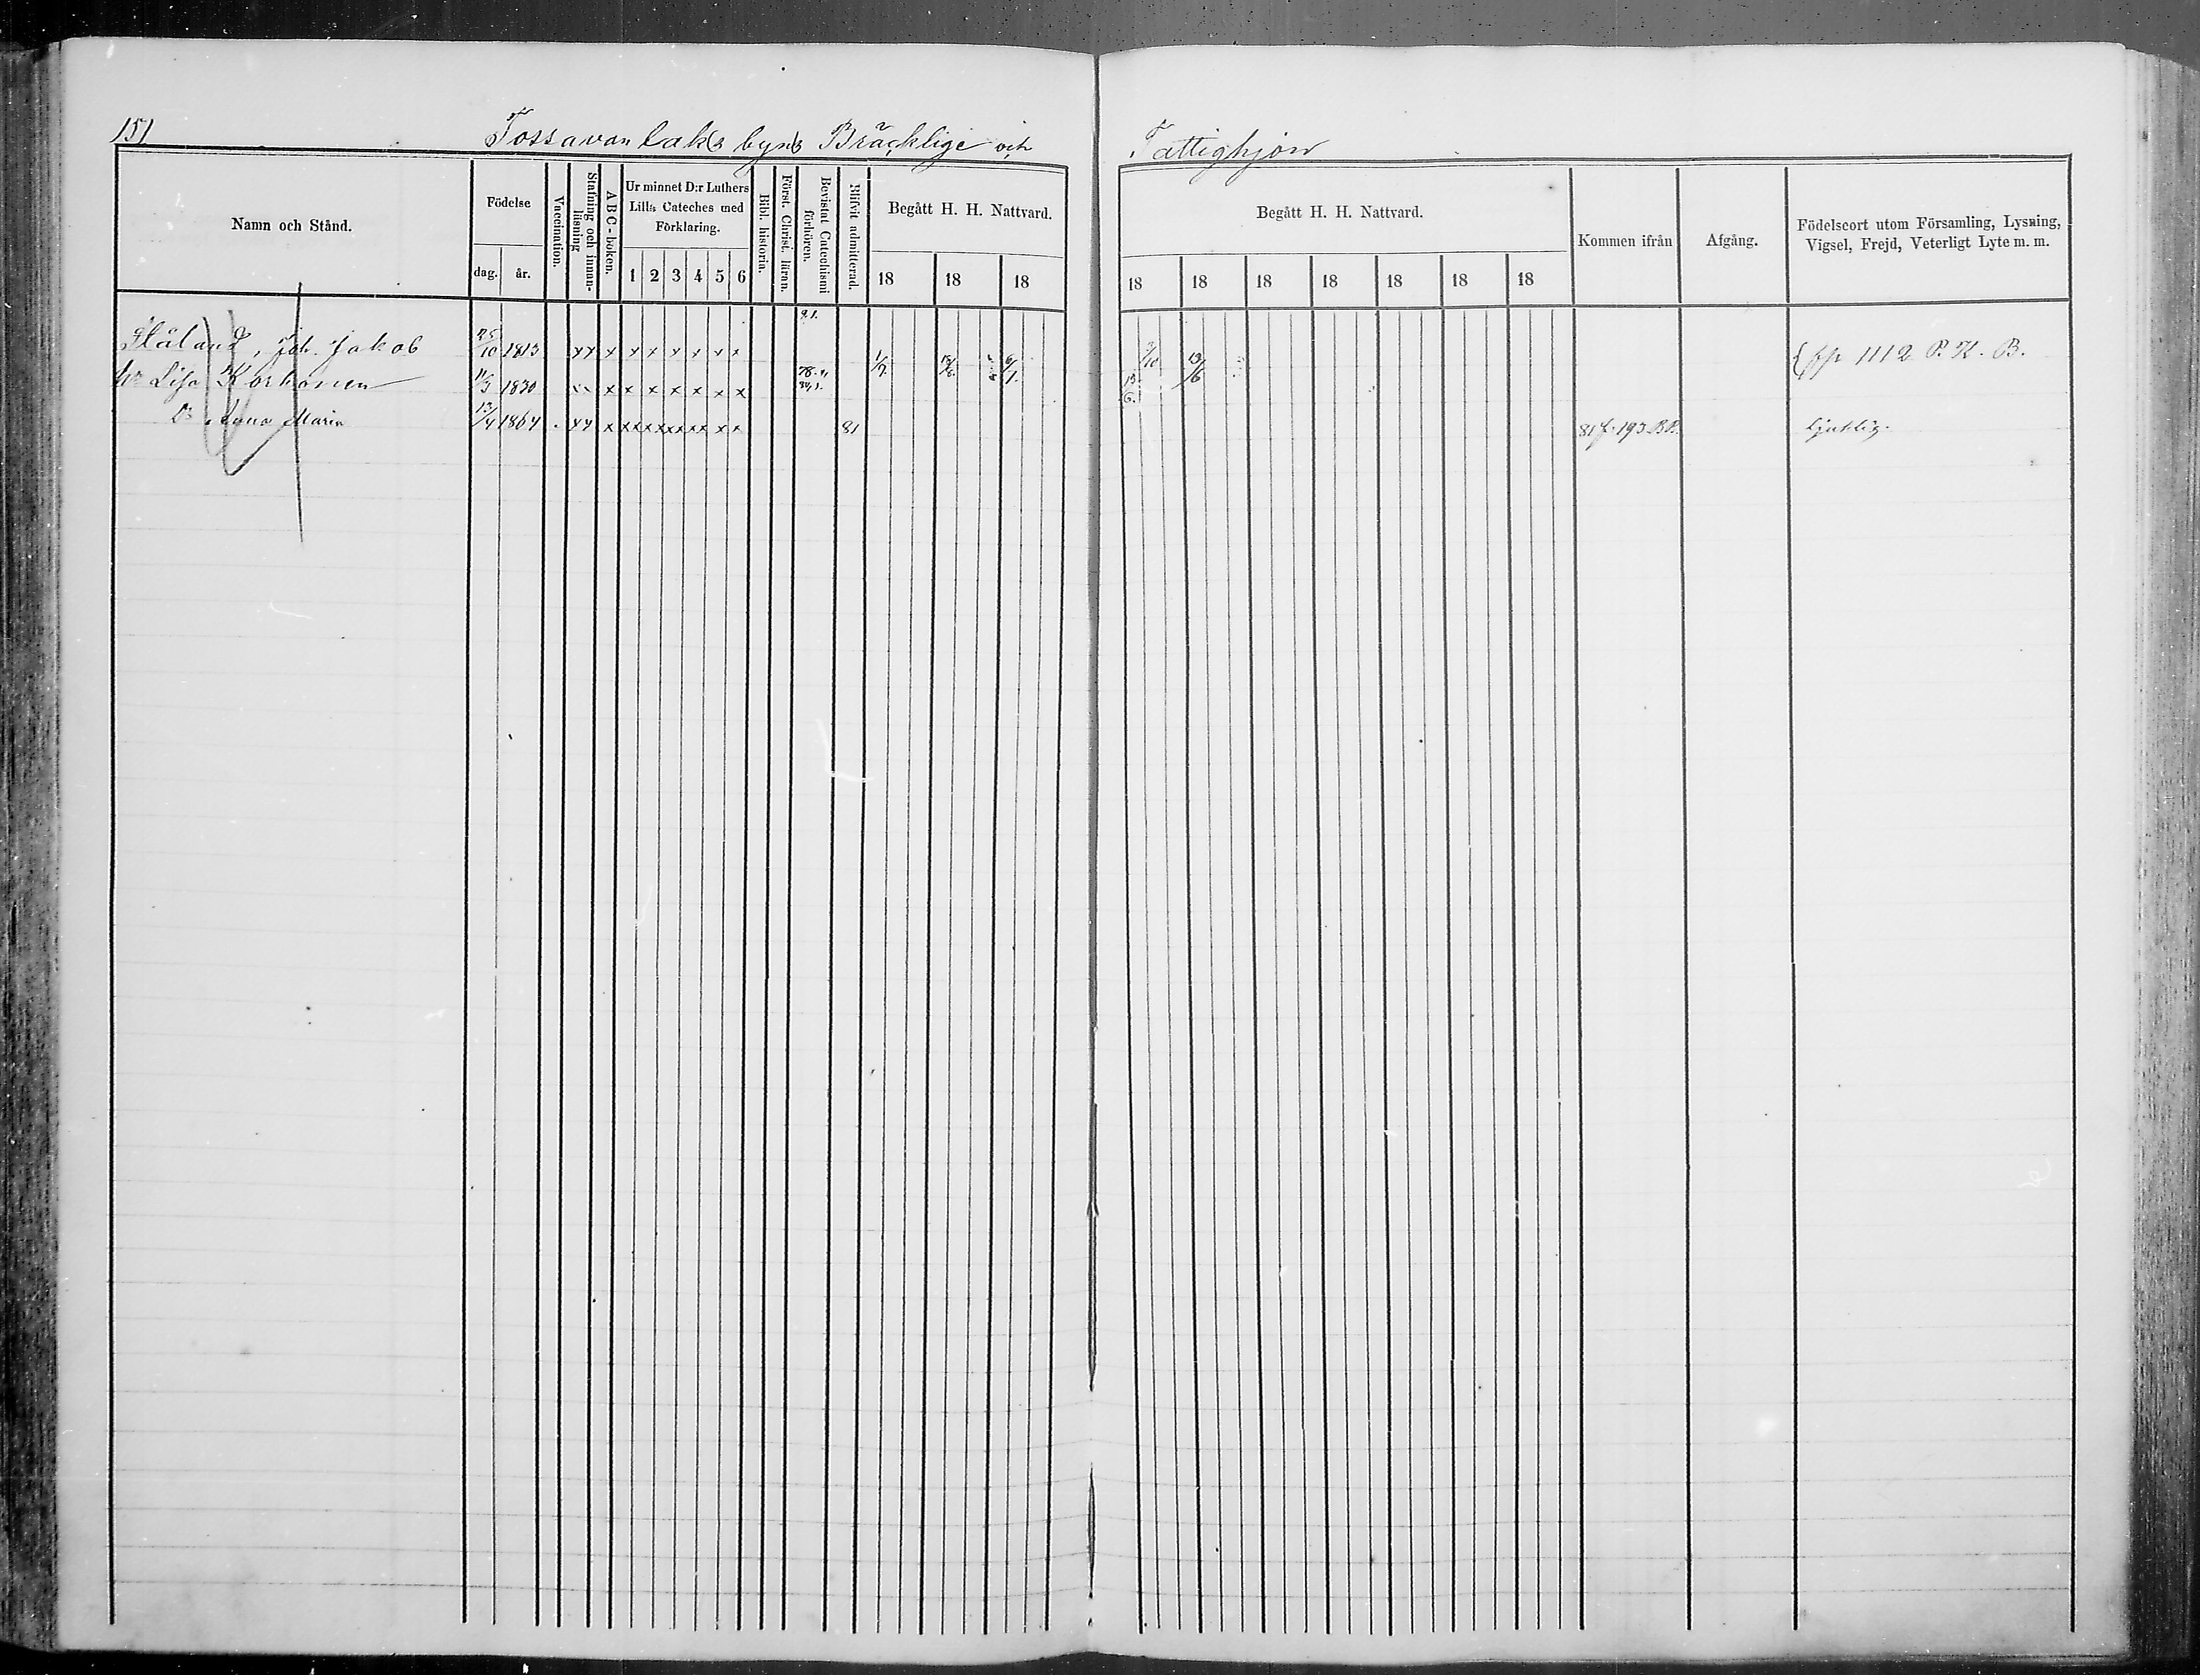 151 Tossavanlaks byns Bräcklige och Fattighjon
Namn och Stånd.
Födelse
dag. år.
Vaccination.
Stafning och innan-läsning
ABC-boken.
Ur minnet D:r Luthers
Lilla Cateches med
Förklaring.
1 2 3 4 5 6
Bibl. historia.
Först. Christ. läran.
Bevistat Catechismi förhören.
Blifvit admitterad.
Begått H. H. Nattvard.
18 18 18
Begått H. H. Nattvard.
18 18 18 18 18 18 18
Kommen ifrån
Afgång.
Födelseort utom Församling, Lysning,
Vigsel, Frejd, Veterligt Lyte m. m.
Ståland, Joh. Jakob 25/10 1813 xx x x x x x x x 1/7 6/7 3/10 13/6 fp 1112 P. K. B.
h. Lisa Korhonen 11/3 1830 x x x x x x x
D. Anna Maria 13/4 1864 xx x xx xx xx xx x x 81 81 f. 193 BP. sjuklig.